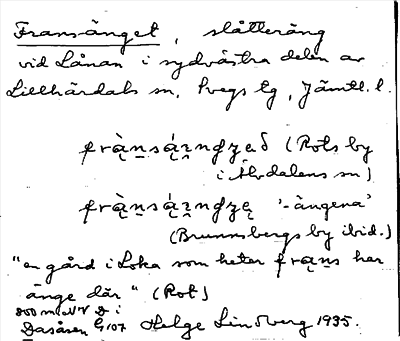 Fransänget, slåtteräng
vid Lånan i sydvästra delen av
Lillhärdals sn, Svegs tg, Jämtl. l.
(Rots by
i Älvdalens sn)
'-ängena'
(Brunnsbergs by ibid.)
"en gård i Loka som heter frąns har
änge där" (Rot)
800 m NV D i
Dåsåsen G 107 Helge Lindberg 1935.